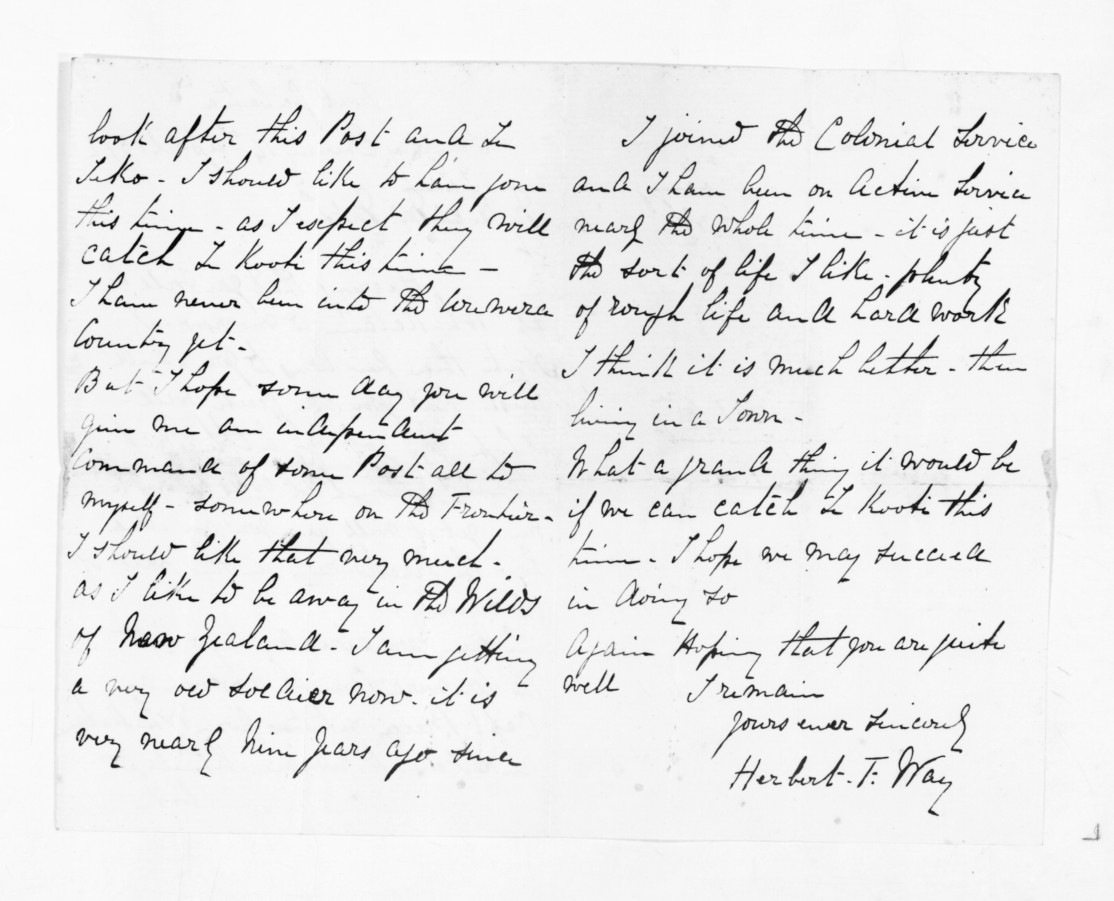 look after this Post and Te
Teko - I should like to have gone
this time - as I expect they will
catch Te Kooti this time -
I have never been into the Urewera
Country yet -
But I hope some day you will
give me an independant
Command of some Post all to
myself - somewhere on the Frontier -
I should like that very much -
as I like to be away in the Wilds
of New Zealand - I am getting
a very old soldier now - it is
very nearly Nine years ago since
I joined the Colonial Service
and I have been on Active Service
nearly the whole time - it is just
the sort of life I like - plenty
of rough life and hard work
I think it is much better - then
living in a Town -
What a grand thing it would be
if we can catch Te Kooti this
time - I hope we may succeed
in doing so
Again Hoping that you are quite
well I remain
yours ever sincerely
Herbert. T. Way